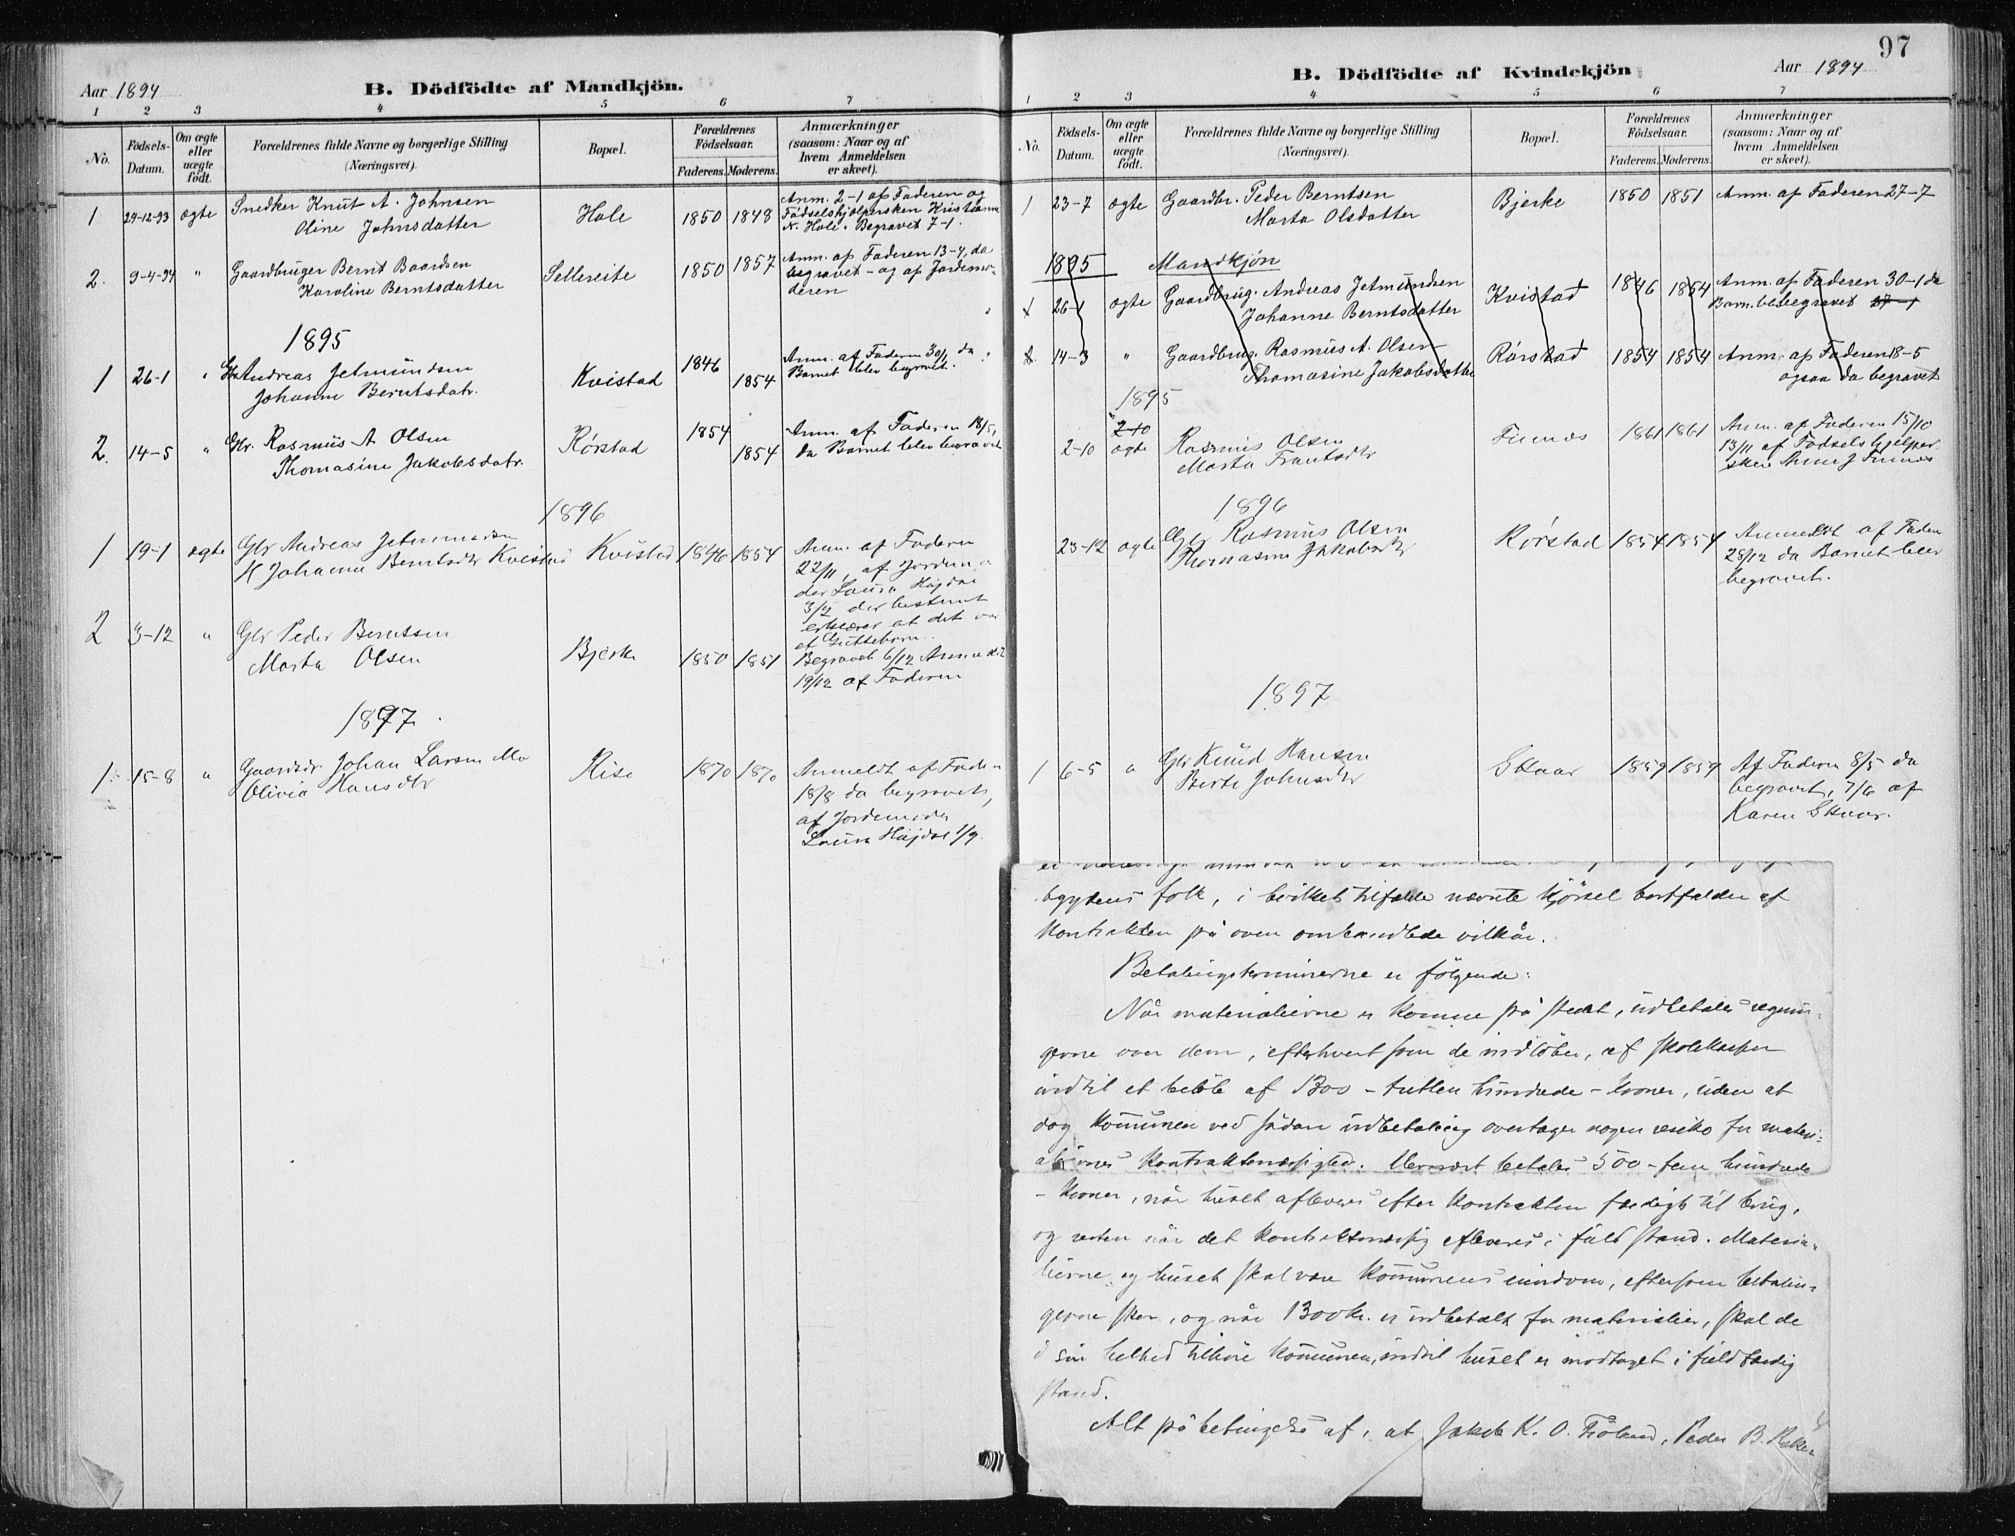 97
Aar 1894
B. Dödfödte af Mandkjön.
1 2 3 4 5 6 7
No.
Födsels-Datum.
Om ægte eller uægte födt.
Forældrenes fulde Navne og borgerlige Stilling (Næringsvei).
Bopæl.
Forældrenes Födselsaar.
Faderens. Moderens.
Anmærkninger (saasom: Naar og af hvem Anmeldelsen er skeet).
1 29-12-93 ægte Snedker Knut A. Johnsen
Oline Johnsdatter
Hole 1850 1848
Anm. 2-1 af Faderen og
Födselshjelpersken Kristianne
N. Hole. Begravet 7-1.
2. 9-4-94 " Gaardbruger Bernt Baardsen
Karoline Berntsdatter
Sellereite 1850 1857
Anm. af Faderen 13-4, da
begravet - og af Jordemo-
deren
1895
1 26-1 " Gbr Andreas Jetmundsen
Johanne Berntsdatr.
Kvistad 1846 1854
Anm. af Faderen 30/1 da
Barnet blev begravet.
2. 14-5 " Gbr. Rasmus A. Olsen
Thomasine Jakobsdatr.
Rørstad 1854 1854
Anm. af Faderen 18/5,
da Barnet blev begravet
1896
1 19-1 ægte Gbr Andreas Jetmundsen
Johanne Berntsdtr Kvistad
Kvistad 1846 1854
Anm. af Faderen
22/11, af Jordmo-
der Laura Højdal
3/2 der bestemt
erklærer at det var
et Guttebarn.
2 3-12 " Gbr Peder Berntsen
Marta Olsen
Bjerke 1850 1851
Begravet 6/12 Anmeldt
19/12 af Faderen
1897
1 15-8 " Gaardbr. Johan Larsen Mo
Olivia Hansdtr
Rise 1870 1870
Anmeldt af Faderen
18/8 da begravet,
af Jordemoder
Laura Højdal 1/9.
B. Dödfödte af Kvindekjön
Aar 1894
1 2 3 4 5 6 7
No.
Födsels-Datum.
Om ægte eller uægte födt.
Forældrenes fulde Navne og borgerlige Stilling (Næringsvei).
Bopæl.
Forældrenes Födselsaar.
Faderens. Moderens.
Anmærkninger (saasom: Naar og af hvem Anmeldelsen er skeet).
1 23-7 ægte Gaardbr. Peder Berntsen
Marta Olsdatter
Bjerke 1850 1851 Anm. af Faderen 27-7
1895 Mandkjøn
1 26-1 ægte Gaardbrug. Andreas Jetmundsen
Johanne Berntsdatter
Kvistad 1846 1854
Anm. af Faderen 30-1 da
Barn. bl. begravet
2. 14-3 " Gaardbrug. Rasmus A. Olsen
Thomasine Jakobsdatter
Rørstad 1854 1854
Anm. af Faderen 18-5
ogsaa da begravet
1895
2-10
2-10 ægte Rasmus Olsen
Marta Frantsdtr
Finnes 1861 1861
Anm. af Faderen 15/10
13/11 af Fødselshjelper
sken Anne J Finnes
1896
23-12 ægte Gbr Rasmus Olsen
Thomasine Jakobsdtr
Rørstad 1854 1854
Anmeldt af Faderen
28/12 da Barnet blev
begravet.
1897
1 6-5 " Gbr Knud Hansen
Berte Johnsdtr
Skaar 1859 1859
Af Faderen 8/5 da
begravet, 7/6 af
Karen Skaar.
bygdens folk, i hvilket tilfælde nævnte kjörsel bortfalder af
kontrakten på oven omhandlede vilkår.
Betalingsterminerne er følgende:
Når materialierne er komne på stedet, udbetales regnin-
gerne over dem, efterhvert som de indlöber, af skolekassen
indtil et belöb af 1300 - tretten hundrede - kroner, uden at
dog kommunen ved sådan udbetaling overtager nogen risiko for materi-
aliernes kontraktmæssighed. Dernæst betales 500 - fem hundrede
- kroner, når huset afleveres efter kontrakten færdigt til brug,
og resten når det kontraktmæssig afleveres i fuld stand. Materia-
lierne og huset skal være kommunens eiendom, eftersom betalin-
gerne sker, og når 1300 kr. er udbetalt for materialier, skal de
i sin helhed tilhöre kommunen, indtil huset er modtaget i fuldfærdig
stand.
Alt på betingelse af, at Jakob K. O. Fröland, Peder B.